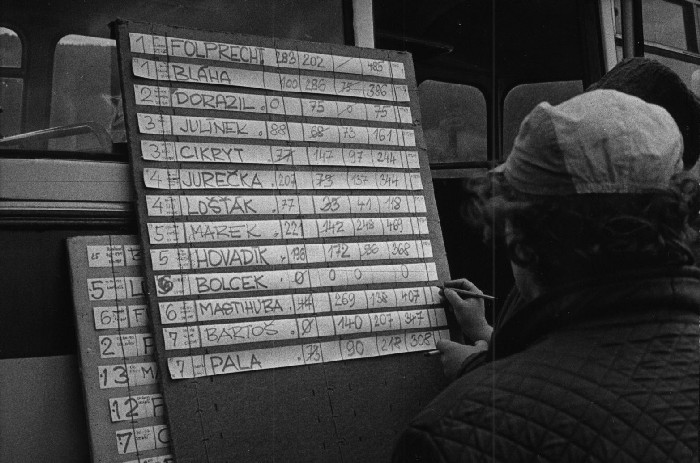 1 FOLPRECHT 283 202 / 485
1 BLÁHA 100 286 386
2 DORAZIL 0 75 0 75
3 JULÍNEK 88 68 73 161
3 CIKRYT 77 147 97 244
4 JUREČKA 207 73 137 344
4 LOŠŤÁK 77 33 41 118
5 MAREK 221 142 248 469
5 HOVADÍK 196 172 96 368
6 BOLCEK 0 0 0 0
6 MASTIHUBA 269 138 407
7 BARTOŠ 0 140 207 347
7 PALA 73 90 218 308
5 L
6 F
2 P
13 M
12 F
7